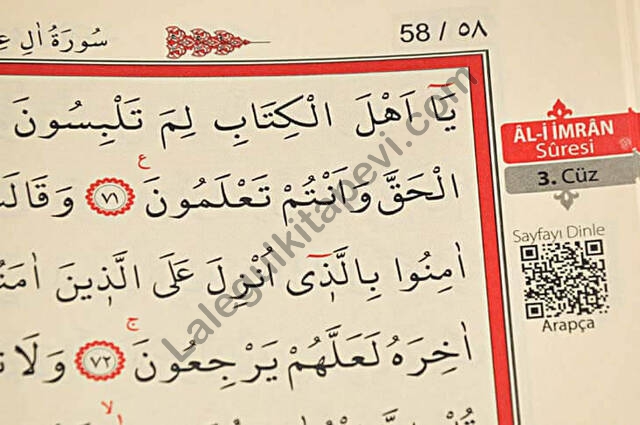 سُورَةُ اٰلِ
58 / ٥٨
يَٓا اَهْلَ الْكِتَابِ لِمَ تَلْبِسُونَ
الْحَقَّ وَاَنْتُمْ تَعْلَمُونَ ع ٧١ وَقَالَتْ
اٰمِنُوا بِالَّذٖٓى اُنْزِلَ عَلَى الَّذٖينَ اٰمَنُوا
اٰخِرَهُ لَعَلَّهُمْ يَرْجِعُونَ ج ٧٢ وَلَا
لا
ÂL-İ İMRÂN
Sûresi
3. Cüz
Sayfayı Dinle
Arapça
Lalegulkitapevi.com